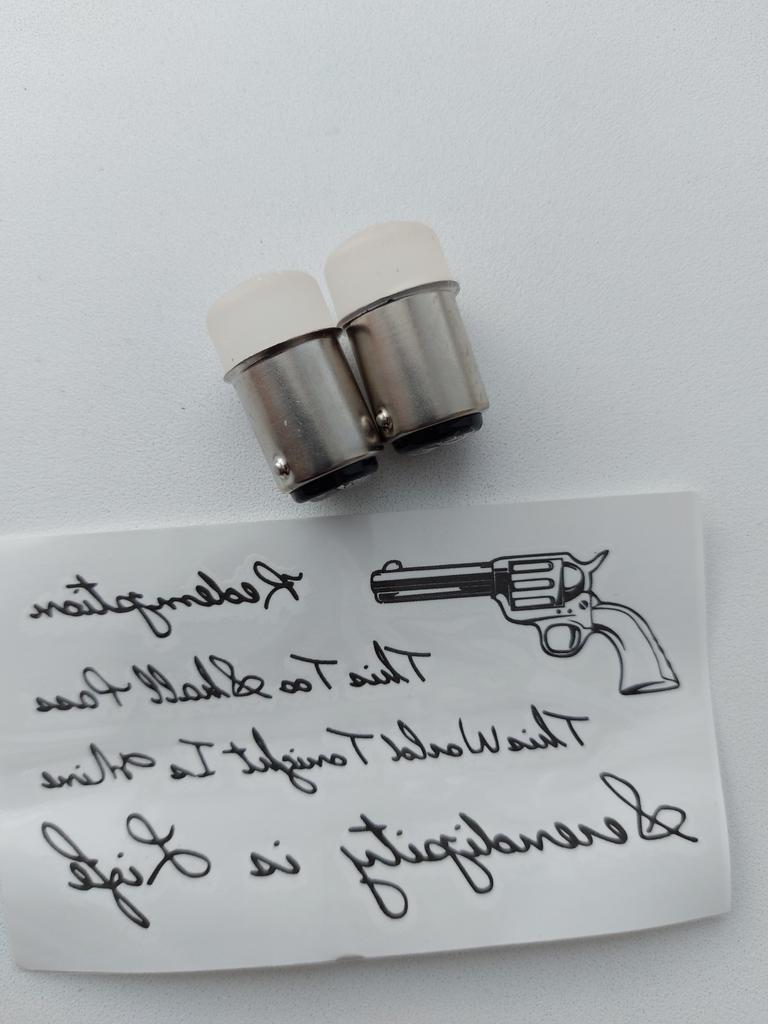 Redemption
This Too Shall Pass
This World Tonight Is Mine
Serendipity is Life